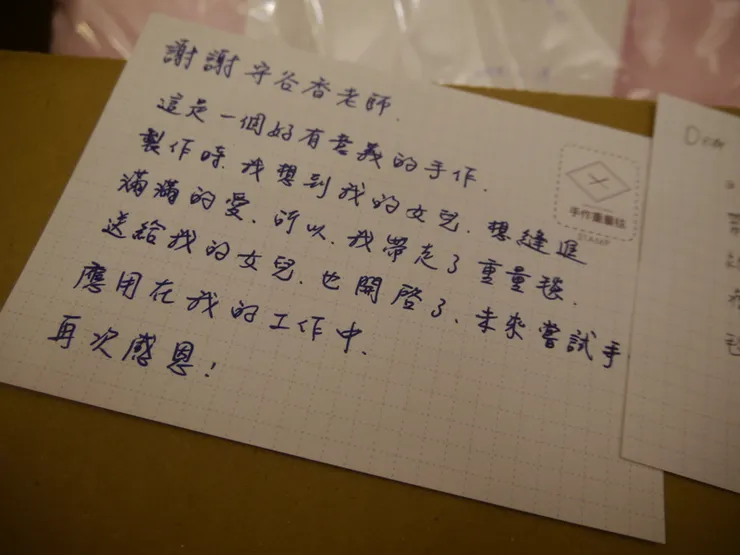 謝謝守谷香老師.
這是一個好有意義的手作.
製作時.我想到我的女兒.想縫進
滿滿的愛.所以.我帶走了重量毯.
送給我的女兒.也開啓了.未來嘗試手
應用在我的工作中.
再次感恩!
手作重量毯
STAMP
Dear